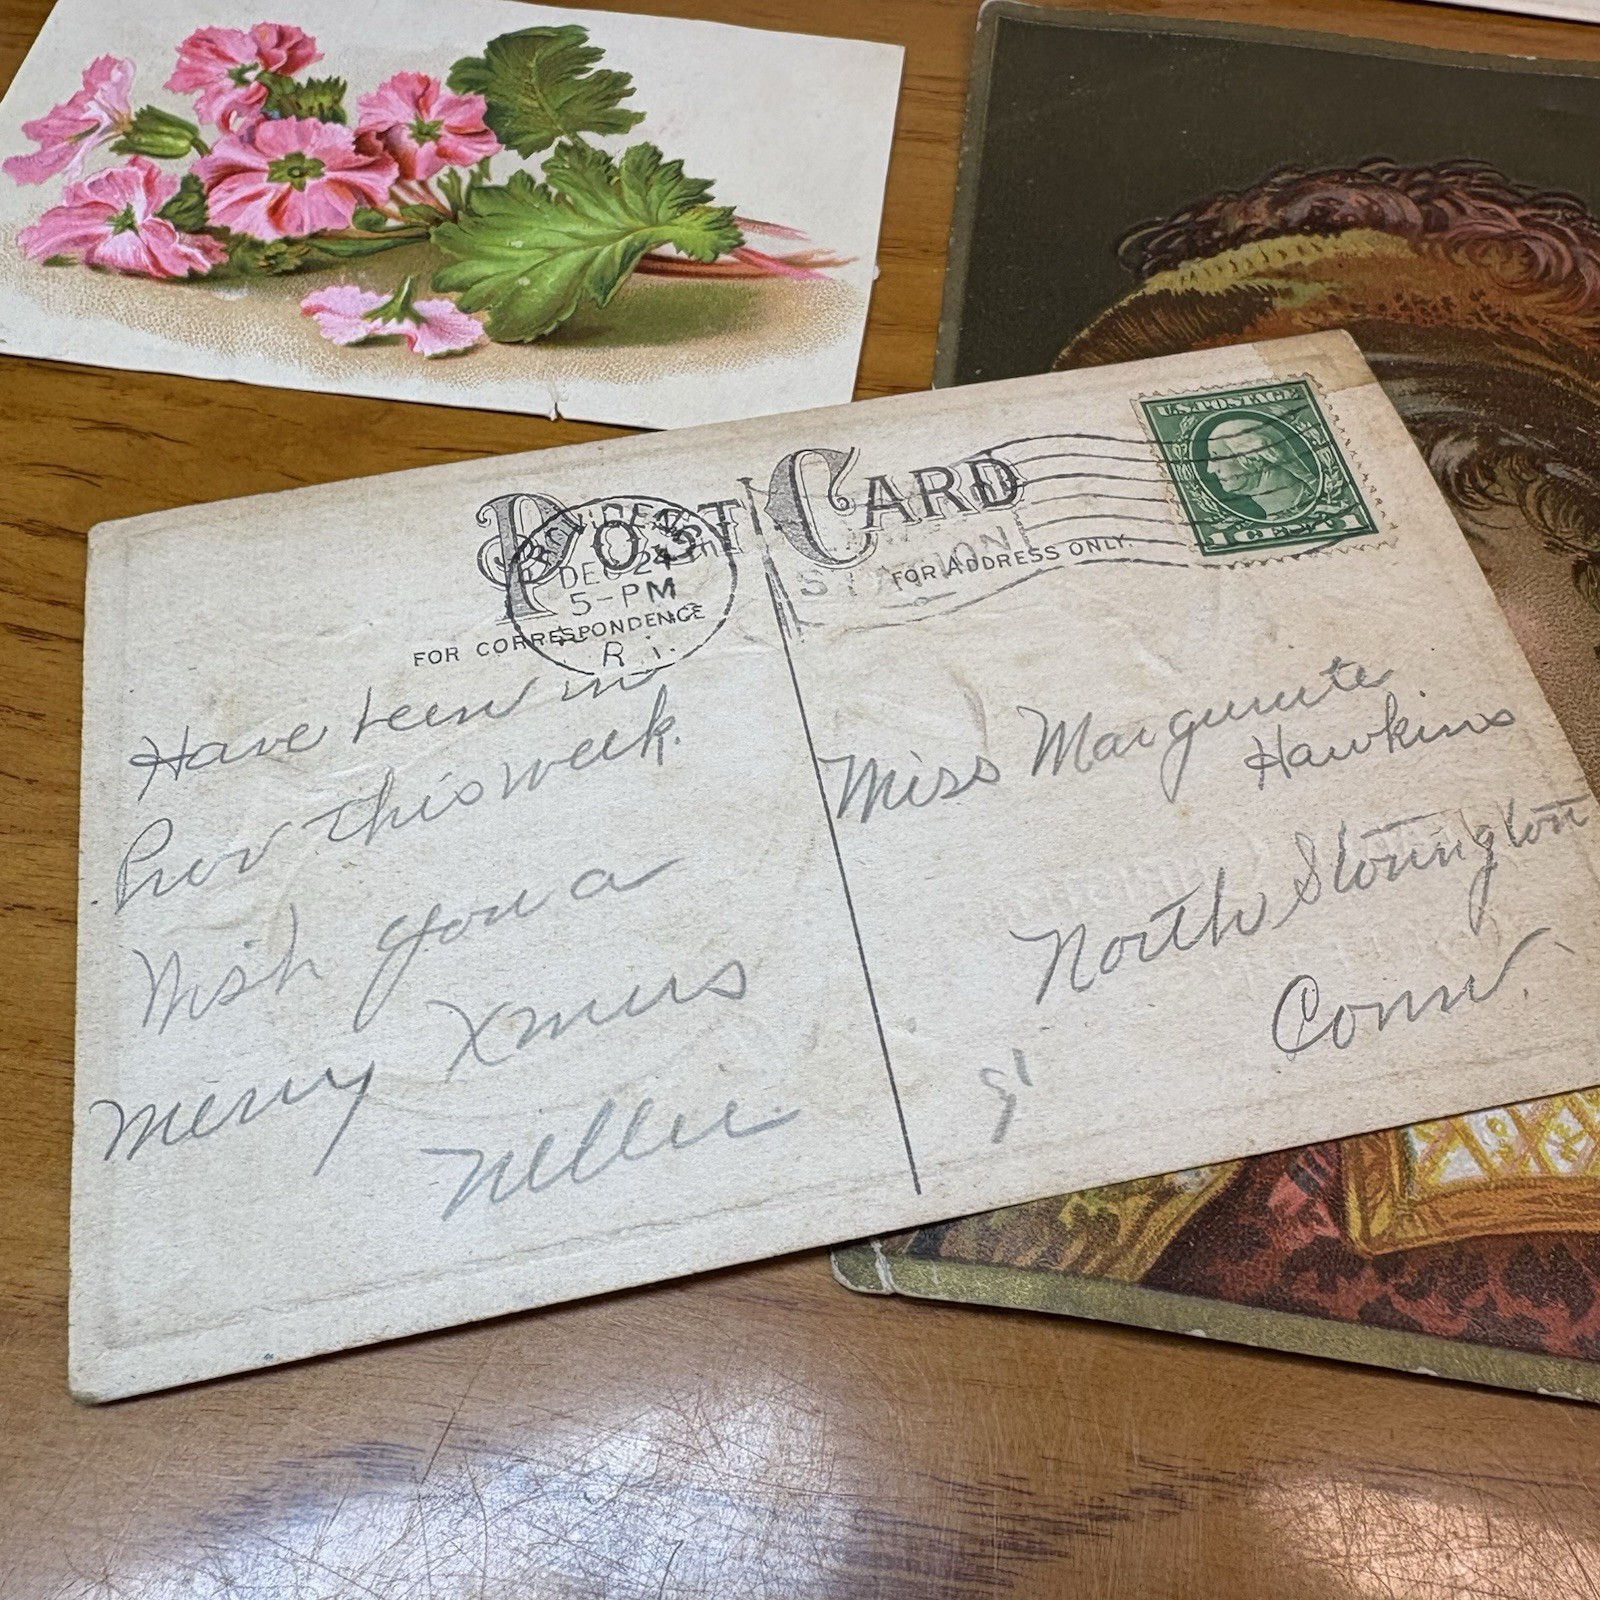 POST CARD
PROVIDENCE
DEC 24
5-PM
R.I.
STATION
FOR CORRESPONDENCE
FOR ADDRESS ONLY.
U.S. POSTAGE
1 CENT 1
Have been in
Prov this week.
Wish you a
Merry Xmas
Nellie.
Miss Marguerite
Hawkins
North Stonington
Conn.